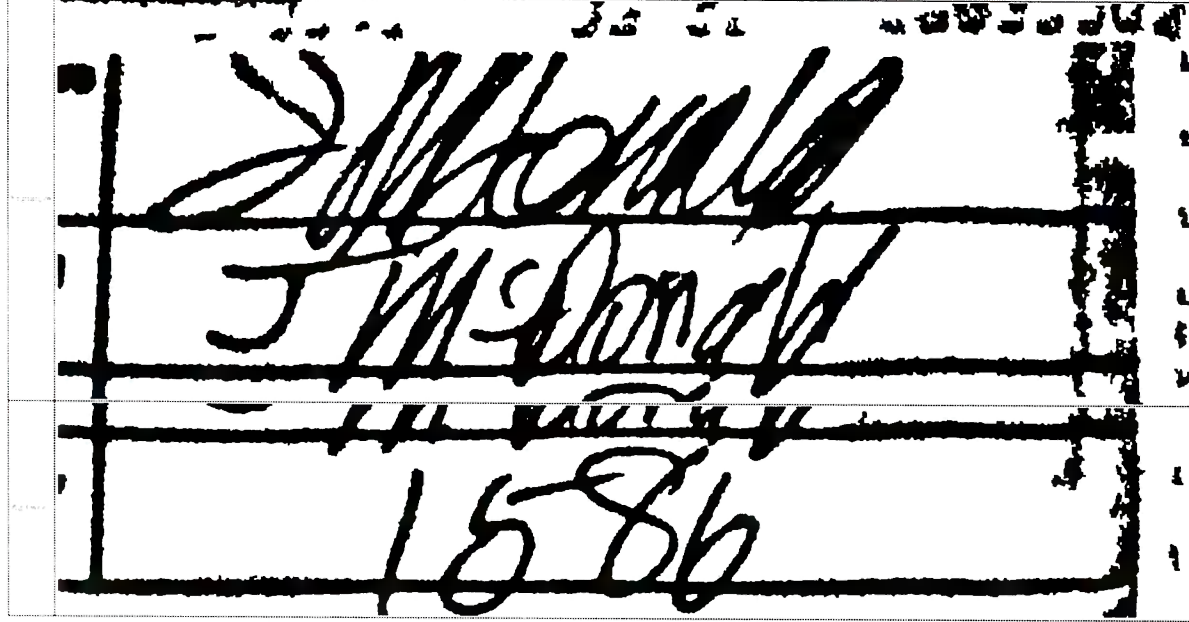 J McDonald
J McDonald
1586